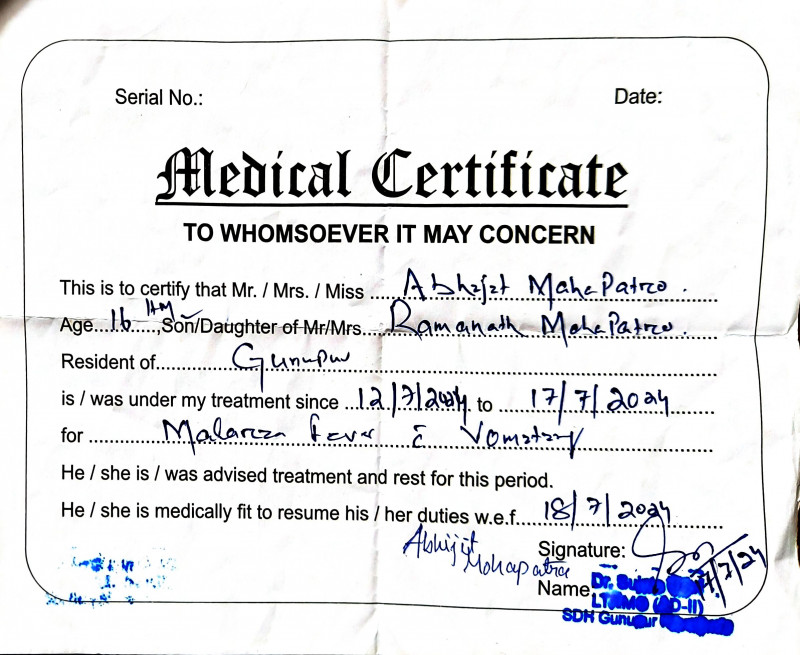 Serial No.: Date:
Medical Certificate
TO WHOMSOEVER IT MAY CONCERN
This is to certify that Mr. / Mrs. / Miss ..... Abhijit MahaPatro.
Age...16 Hm...,Son/Daughter of Mr/Mrs... Ramanath MahaPatro.
Resident of..... Gunupur
is / was under my treatment since ...12/7/2024 to ... 17/7/2024
for ..... Malaria Fever c̄ Vomiting
He / she is / was advised treatment and rest for this period.
He / she is medically fit to resume his / her duties w.e.f.... 18/7/2024
Abhijit Signature:
Mohapatra 17/7/24
Name Dr.
(AD-II)
SDH Gunupur